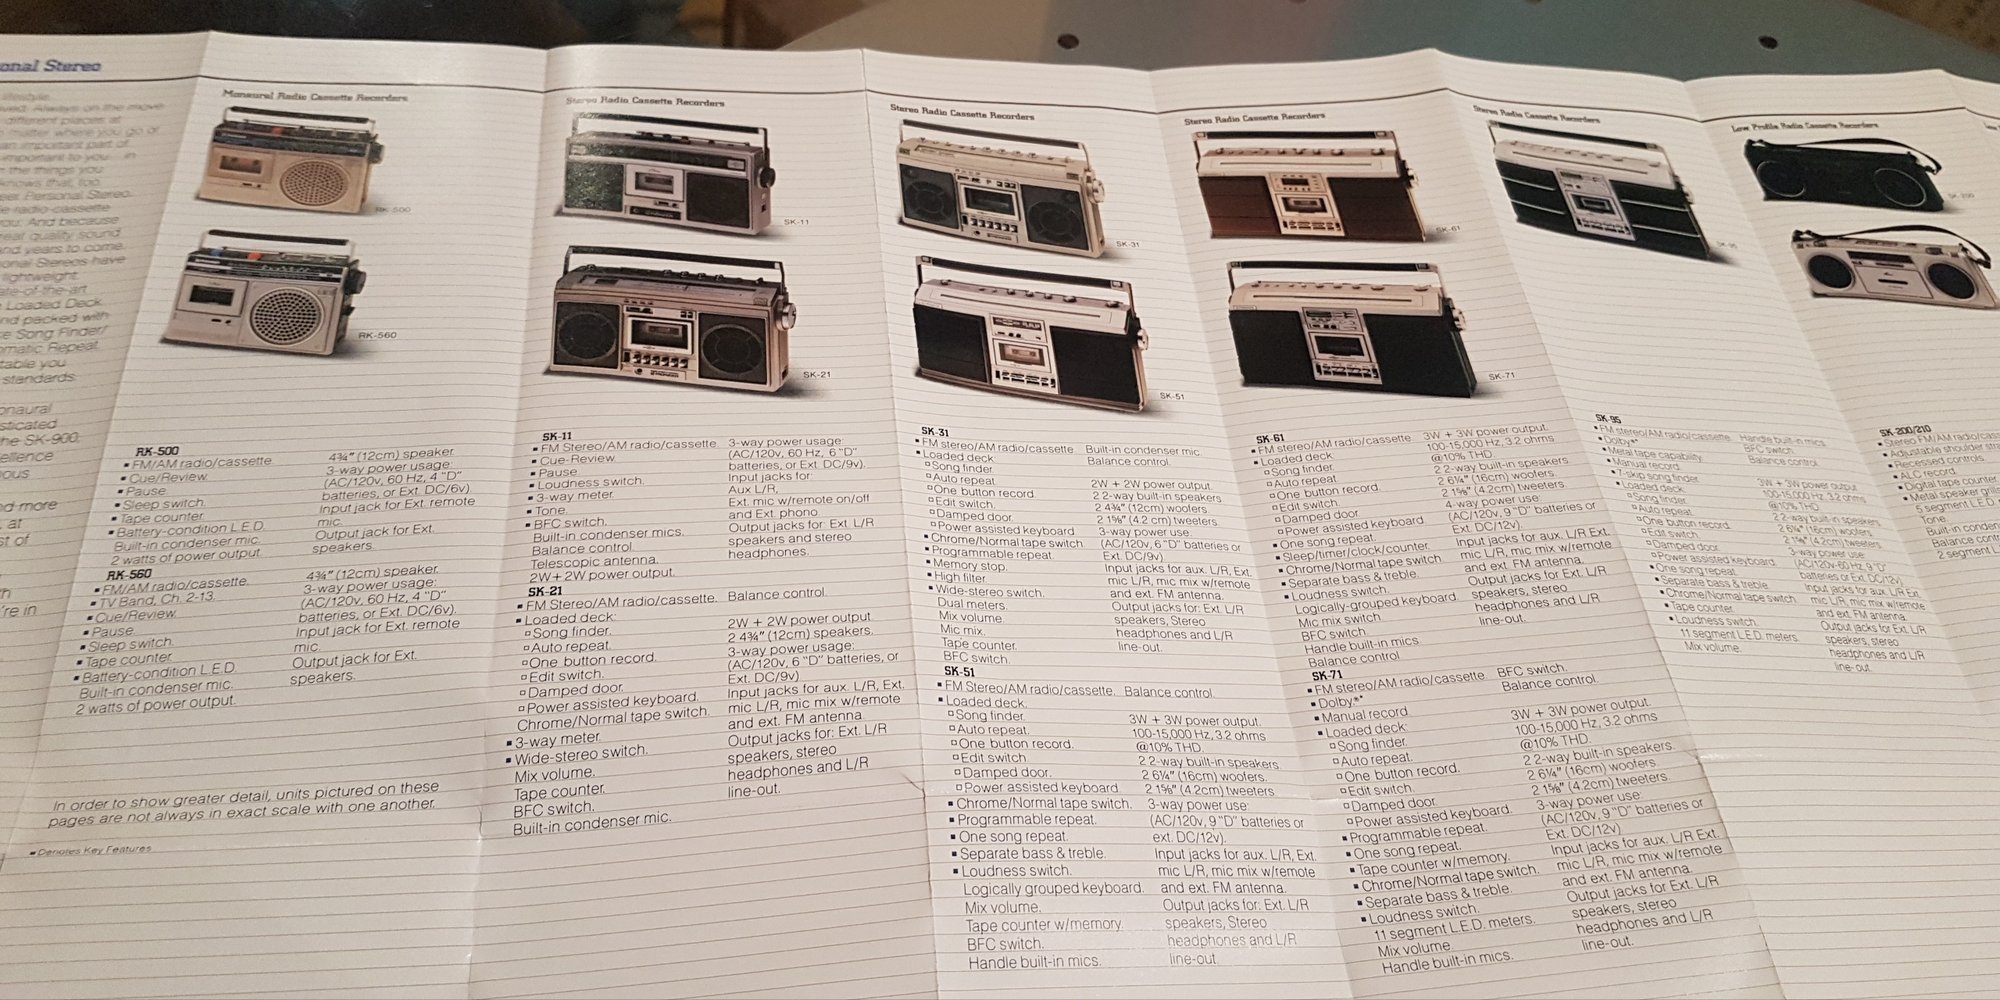 onal Stereo
lifestyle.
ved. Always on the move
different places at
matter where you go or
an important part of
important to you... in
the things you
knows that, too.
eer Personal Stereo.
e radio-cassette
you. And because
near quality sound
and years to come.
onal Stereos have
lightweight,
ate-of-the-art
e Loaded Deck.
nd packed with
e Song Finder/
omatic Repeat.
table you
standards.
onaural
sticated
he SK-900.
ellence
ious
nd more
at
st of
h
're in
Monaural Radio Cassette Recorders
RK-500
RK-560
RK-500
▪ FM/AM radio/cassette
▪ Cue/Review.
▪ Pause.
▪ Sleep switch.
▪ Tape counter.
▪ Battery-condition L.E.D.
Built-in condenser mic.
2 watts of power output.
4¾" (12cm) speaker.
3-way power usage:
(AC/120v, 60 Hz, 4 "D"
batteries, or Ext. DC/6v)
Input jack for Ext. remote
mic.
Output jack for Ext.
speakers.
RK-560
▪ FM/AM radio/cassette.
▪ TV Band, Ch. 2-13.
▪ Cue/Review.
▪ Pause.
▪ Sleep switch.
▪ Tape counter.
▪ Battery-condition L.E.D.
Built-in condenser mic.
2 watts of power output.
4¾" (12cm) speaker.
3-way power usage:
(AC/120v, 60 Hz, 4 "D"
batteries, or Ext. DC/6v).
Input jack for Ext. remote
mic.
Output jack for Ext.
speakers.
In order to show greater detail, units pictured on these
pages are not always in exact scale with one another.
▪ Denotes Key Features
Stereo Radio Cassette Recorders
SK-11
SK-21
SK-11
▪ FM Stereo/AM radio/cassette
▪ Cue-Review.
▪ Pause.
▪ Loudness switch.
▪ 3-way meter.
▪ Tone.
▪ BFC switch.
Built-in condenser mics.
Balance control.
Telescopic antenna.
2W+2W power output.
3-way power usage:
(AC/120v, 60 Hz, 6 "D"
batteries, or Ext. DC/9v).
Input jacks for
Aux L/R,
Ext. mic w/remote on/off
and Ext. phono.
Output jacks for Ext. L/R
speakers and stereo
headphones.
SK-21
▪ FM Stereo/AM radio/cassette.
▪ Loaded deck:
▫ Song finder.
▫ Auto repeat.
▫ One button record.
▫ Edit switch.
▫ Damped door.
▫ Power assisted keyboard.
Chrome/Normal tape switch.
▪ 3-way meter.
▪ Wide-stereo switch.
Mix volume.
Tape counter.
BFC switch.
Built-in condenser mic.
Balance control.
2W + 2W power output
2 4¾" (12cm) speakers.
3-way power usage:
(AC/120v, 6 "D" batteries, or
Ext. DC/9v)
Input jacks for aux. L/R, Ext.
mic L/R, mic mix w/remote
and ext. FM antenna.
Output jacks for: Ext. L/R
speakers, stereo
headphones and L/R
line-out.
Stereo Radio Cassette Recorders
SK-31
SK-51
SK-31
▪ FM stereo/AM radio/cassette.
▪ Loaded deck:
▫ Song finder.
▫ Auto repeat.
▫ One button record.
▫ Edit switch.
▫ Damped door.
▫ Power assisted keyboard
▪ Chrome/Normal tape switch
▪ Programmable repeat.
▪ Memory stop.
▪ High filter.
▪ Wide-stereo switch.
Dual meters.
Mix volume.
Mic mix.
Tape counter.
BFC switch.
Built-in condenser mic.
Balance control.
2W + 2W power output.
2 2-way built-in speakers
2 4¾" (12cm) woofers.
2 1⅝" (4.2 cm) tweeters
3-way power use:
(AC/120v, 6 "D" batteries or
Ext. DC/9v)
Input jacks for aux. L/R, Ext.
mic L/R, mic mix w/remote
and ext. FM antenna
Output jacks for: Ext. L/R
speakers, Stereo
headphones and L/R
line-out.
SK-51
▪ FM Stereo/AM radio/cassette.
▪ Loaded deck:
▫ Song finder.
▫ Auto repeat.
▫ One button record.
▫ Edit switch.
▫ Damped door.
▫ Power assisted keyboard.
▪ Chrome/Normal tape switch.
▪ Programmable repeat.
▪ One song repeat.
▪ Separate bass & treble.
▪ Loudness switch.
Logically grouped keyboard.
Mix volume.
Tape counter w/memory.
BFC switch.
Handle built-in mics.
Balance control.
3W + 3W power output.
100-15,000 Hz, 3.2 ohms
@10% THD.
2 2-way built-in speakers.
2 6¼" (16cm) woofers.
2 1⅝" (4.2cm) tweeters.
3-way power use:
(AC/120v, 9 "D" batteries or
ext. DC/12v).
Input jacks for aux. L/R, Ext.
mic L/R, mic mix w/remote
and ext. FM antenna.
Output jacks for: Ext. L/R
speakers, Stereo
headphones and L/R
line-out.
Stereo Radio Cassette Recorders
SK-61
SK-71
SK-61
▪ FM stereo/AM radio/cassette
▪ Loaded deck:
▫ Song finder.
▫ Auto repeat.
▫ One button record.
▫ Edit switch.
▫ Damped door.
▫ Power assisted keyboard.
▪ One song repeat.
▪ Sleep/timer/clock/counter.
▪ Chrome/Normal tape switch
▪ Separate bass & treble.
▪ Loudness switch.
Logically-grouped keyboard.
Mic mix switch.
BFC switch.
Handle built-in mics
Balance control
3W + 3W power output.
100-15,000 Hz, 3.2 ohms
@10% THD.
2 2-way built-in speakers
2 6¼" (16cm) woofers.
2 1⅝" (4.2cm) tweeters.
4-way power use:
(AC/120v, 9 "D" batteries or
Ext. DC/12v).
Input jacks for aux. L/R Ext.
mic L/R, mic mix w/remote
and ext. FM antenna.
Output jacks for Ext. L/R
speakers, stereo
headphones and L/R
line-out.
SK-71
▪ FM stereo/AM radio/cassette.
▪ Dolby®*
▪ Manual record
▪ Loaded deck:
▫ Song finder.
▫ Auto repeat.
▫ One button record.
▫ Edit switch.
▫ Damped door.
▫ Power assisted keyboard.
▪ Programmable repeat.
▪ One song repeat.
▪ Tape counter w/memory.
▪ Chrome/Normal tape switch.
▪ Separate bass & treble.
▪ Loudness switch.
11 segment L.E.D. meters.
Mix volume.
Handle built-in mics.
BFC switch.
Balance control.
3W + 3W power output.
100-15,000 Hz, 3.2 ohms
@10% THD.
2 2-way built-in speakers.
2 6¼" (16cm) woofers.
2 1⅝" (4.2cm) tweeters.
3-way power use:
(AC/120v, 9 "D" batteries or
Ext. DC/12v)
Input jacks for aux. L/R Ext.
mic L/R, mic mix w/remote
and ext. FM antenna.
Output jacks for Ext. L/R
speakers, stereo
headphones and L/R
line-out.
Stereo Radio Cassette Recorders
SK-95
SK-95
▪ FM stereo/AM radio/cassette
▪ Dolby®*
▪ Metal tape capability.
▪ Manual record.
▪ 7-skip song finder.
▪ Loaded deck:
▫ Song finder.
▫ Auto repeat.
▫ One button record.
▫ Edit switch.
▫ Damped door.
▫ Power assisted keyboard.
▪ One song repeat.
▪ Separate bass & treble
▪ Chrome/Normal tape switch.
▪ Tape counter.
▪ Loudness switch.
11 segment L.E.D. meters.
Mix volume.
Handle built-in mics.
BFC switch.
Balance control
3W + 3W power output
100-15,000 Hz, 3.2 ohms
@10% THD.
2 2-way built-in speakers
2 6¼" (16cm) woofers
2 1⅝" (4.2cm) tweeters.
3-way power use:
(AC/120v-60 Hz, 9 "D"
batteries or Ext. DC/12v).
Input jacks for aux. L/R Ext.
mic L/R, mic mix w/remote
and ext. FM antenna
Output jacks for Ext. L/R
speakers, stereo
headphones and L/R
line-out.
Low Profile Radio Cassette Recorders
SK-200
SK-200/210
▪ Stereo FM/AM radio/cass
▪ Adjustable shoulder stra
▪ Recessed controls.
▪ ALC record.
▪ Digital tape counter.
▪ Metal speaker grills
5 segment L.E.D.
Tone.
Built-in conden
Balance contr
2 segment L